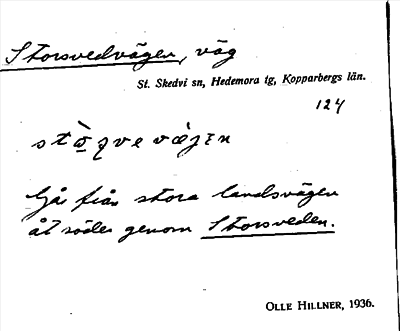 Storsvedvägen, väg
St. Skedvi sn, Hedemora tg, Kopparbergs län.
124
Går från stora landsvägen
åt söder genom Storsveden.
OLLE HILLNER, 1936.